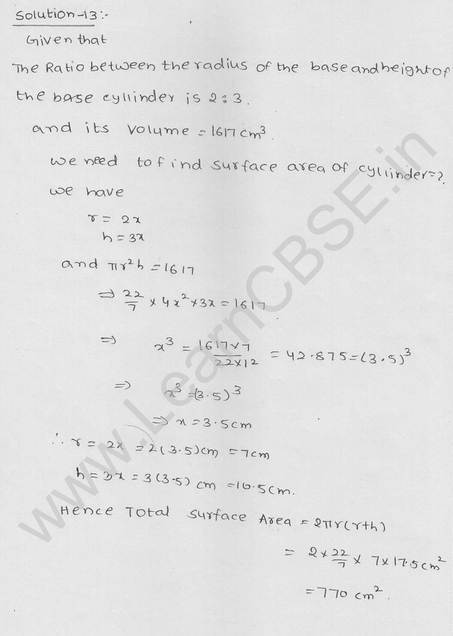 Solution-13:-
Given that
The Ratio between the radius of the base and height of
the base cyllinder is 2:3.
and its volume = 1617 cm³.
we need to find surface area of cyllinder=?
we have
r = 2x
h = 3x
and πr²h = 1617
⇒ 22/7 × 4x² × 3x = 1617
⇒ x³ = 1617×7/22×12 = 42.875 = (3.5)³
⇒ x³ = (3.5)³
⇒ x = 3.5cm
∴ r = 2x = 2(3.5)cm = 7cm
h = 3x = 3(3.5) cm = 10.5cm.
Hence Total surface Area = 2πr(r+h)
= 2 × 22/7 × 7 × 17.5 cm²
= 770 cm².
www.LearnCBSE.in